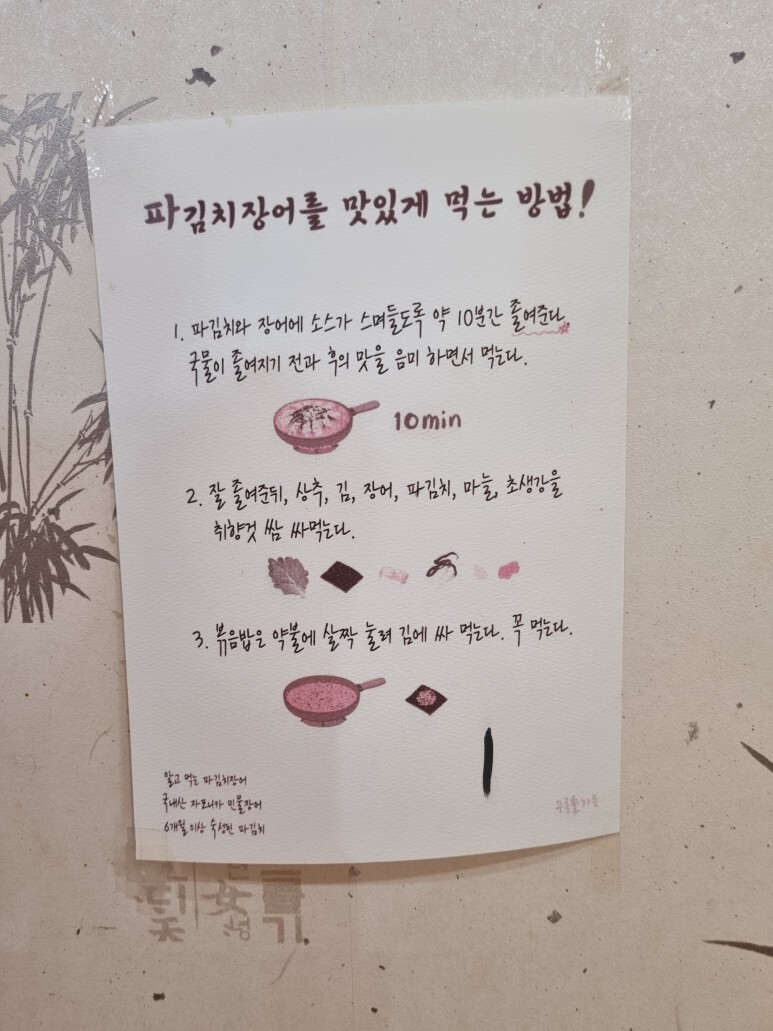 파김치장어를 맛있게 먹는 방법!
1. 파김치와 장어에 소스가 스며들도록 약 10분간 졸여준다.
국물이 졸여지기 전과 후의 맛을 음미 하면서 먹는다.
10min
2. 잘 졸여준뒤, 상추, 김, 장어, 파김치, 마늘, 초생강을
취향껏 쌈 싸먹는다.
3. 볶음밥은 약불에 살짝 눌려 김에 싸 먹는다. 꼭 먹는다.
알고 먹는 파김치장어
국내산 자포니카 민물장어
6개월 이상 숙성된 파김치